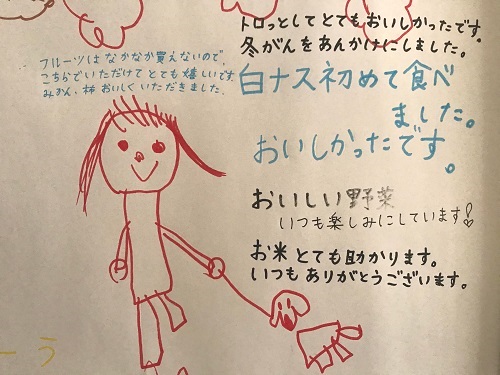 トロっとしてとてもおいしかったです。
冬がんをあんかけにしました。
フルーツはなかなか買えないので
こちらでいただけてとても嬉しいです
みかん、柿おいしくいただきました。
白ナス初めて食べ
ました。
おいしかったです。
おいしい野菜
いつも楽しみにしています!
お米とても助かります。
いつもありがとうございます。
ーう